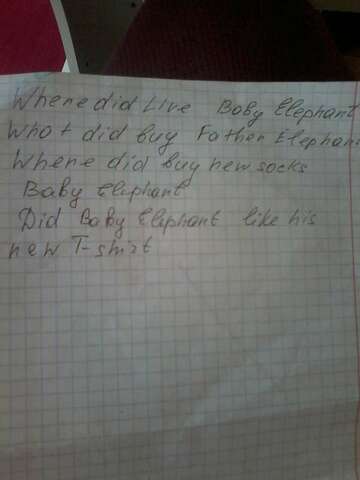 Where did Live Baby Elephant
What did buy Father Elephan
Where did buy new socks
Baby Elephant
Did Baby Elephant like his
new T-shirt